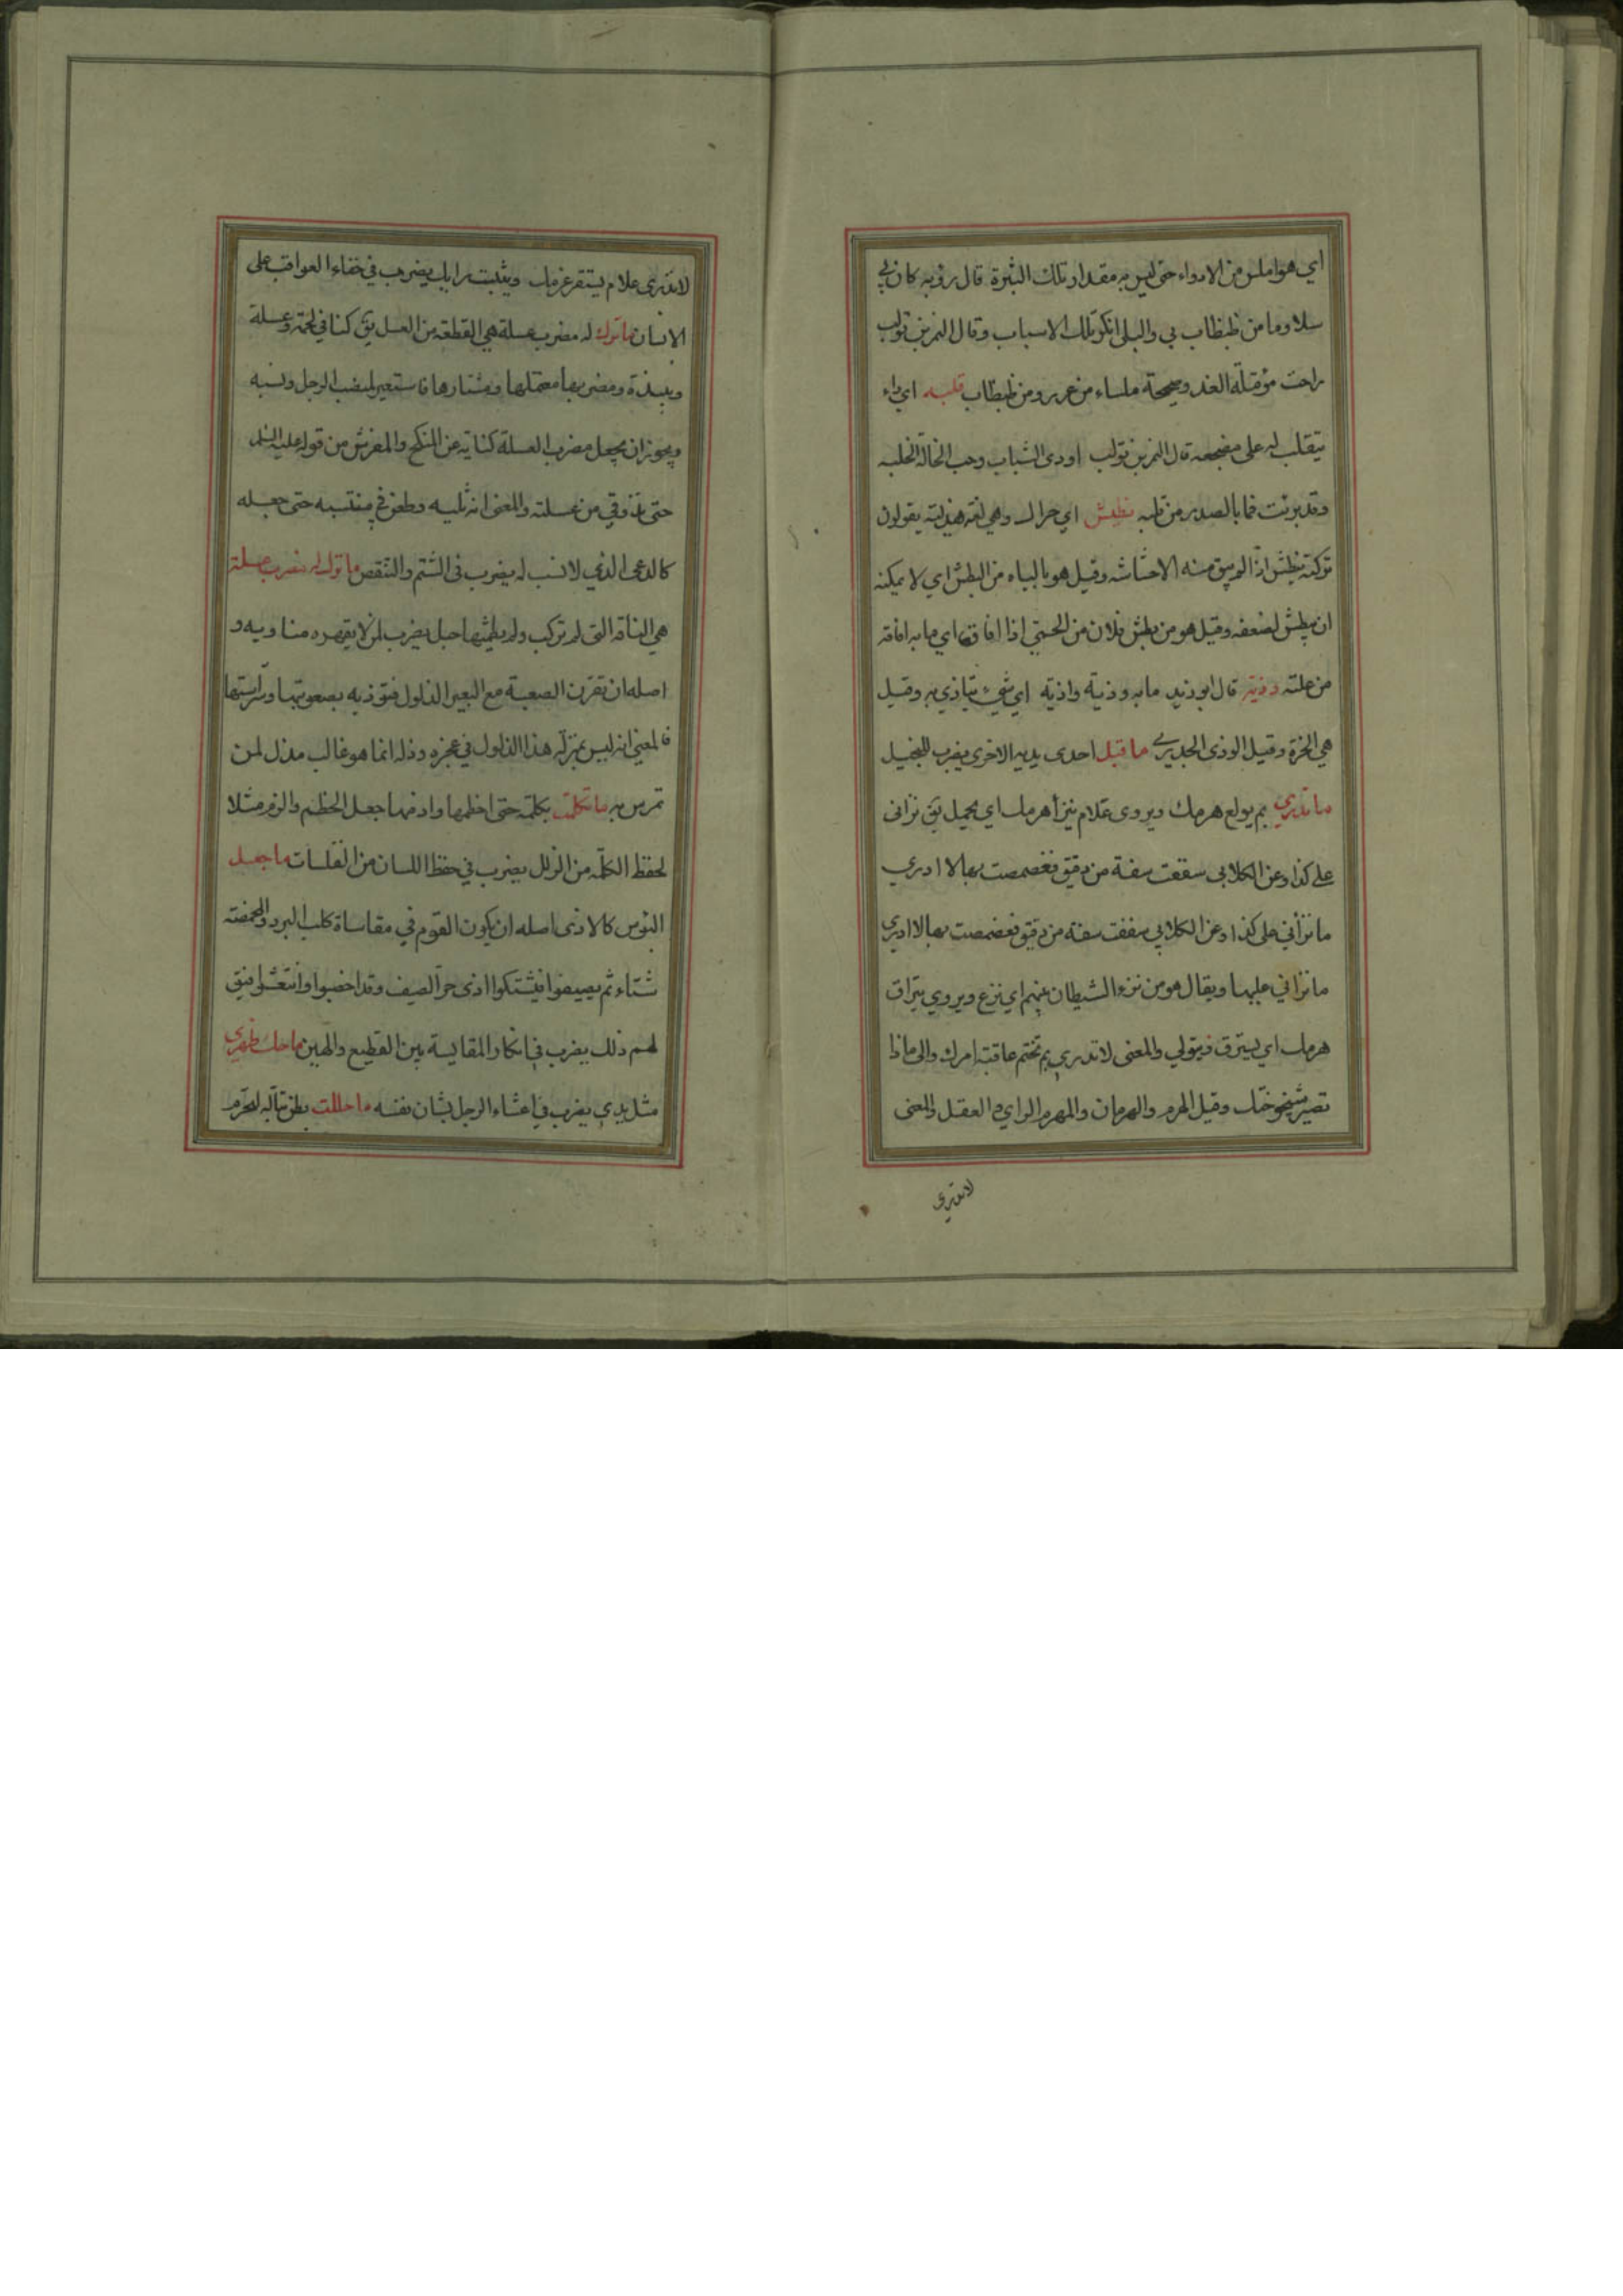 اي هو املس من الادواء حتى ليس به مقدار تلك البثرة قال رؤبه كان بي
سلا وما من ظبظاب بي والبلى انكر تلك الاسباب وقال النمر بن تولب
راحت مؤقتلة الغد وصحيحة ملساء من عرر ومن ظبظاب قلبه اي داء
يتقلب له على مضجعه قال النمر بن تولب اودى الشباب وحب الخالة الخلبه
وقد برئت فما بالصدر من قلبه نطيش اي حراك وهي لغه هذليته يقولون
تركته نطيش اذا لم يبق منه الا حشاشه وقيل هو بالباء من البطش اي لا يمكنه
ان يبطش لضعفه وقيل هو من بطش فلان من الحمى اذا افاق منها اي ما به افاقه
من علته وذيه قال ابو زيد ما به وذية واذيه اي شيء يتاذي به وقيل
هي الخزة وقيل الوذى الجدري ما قبل احدى يديه الاخرى يضرب للبخيل
ما تدري بم يولع هرمك ويروى علام ينزأ هرمك اي يحيل يق نزاني
على كذا وعن الكلابي سقفت سفة من دقيق فغصصت بها لا ادري
ما نزأني على كذا وعن الكلابي سففت سفة من دقيق فغصصت بها لا ادري
ما نزاني عليها ويقال هو من نزء الشيطان بينهم اي نزع ويروي يتراق
هرمك اي يسترق فيتولي والمعنى لا تدري بم تختم عاقبة امرك والى ماذا
تصير شيخوختك وقيل الهرم والهرمان والمهرم الراي و العقل والمعنى
لا تدري
لا تدرى علام يستقر عزمك ويثبت رايك يضرب في خفاء العواقب على
الانسان ما ترك له مضرب عسلة هي القطعه من العسل يق كنا في لحمة وعسلة
ونبيذة ومضربها معتملها ومشتارها فاستعير لمنصب الرجل ونسبه
ويجوز ان يجعل مضرب العسلة كنايه عن المنكح والمفرش من قوله عليه السلم
حتى تذوقي من عسلته والمعنى انه ثلبه وطعن في منتسبه حتى جعله
كالدعى الذي لا نسب له يضرب في الشتم والتنقص ما ترك له مضرب عسلة
هي الناقه التي لم تركب ولم يطمثها حبل يضرب لمن لا يقهره مناويه و
اصله ان تقرن الصعبة مع البعير الذلول فتوذيه بصعوبتها وشراستها
فالمعنى انه ليس بمنزله هذا الذلول في عجزه وذله انما هو غالب مذل لمن
تمرس به ما تكلمت بكلمة حتى اخطمها وازمها جعل الخطم والزم مثلا
لحفظ الكلمة من الزلل يضرب في حفظ اللسان من الفلسات ما جعل
البؤس كالاذى اصله ان يكون القوم في مقاساة كلب البرد والمحمضته
شتاء ثم يصيفوا فيشتكوا اذى حر الصيف وقد اخصبوا وانتعشوا فيق
لهم ذلك يضرب في انكار المقايسة بين الفظيع والهين ما حك ظهري
مثل يدي يضرب في اعتناء الرجل بشان نفسه ما حللت بطن تباله لتحرم